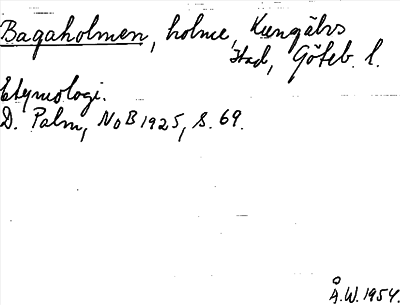 Bagaholmen, holme, Kungälvs
stad, Göteb. l.
Etymologi.
D. Palm, NoB 1925, s. 69.
Å.W. 1954.